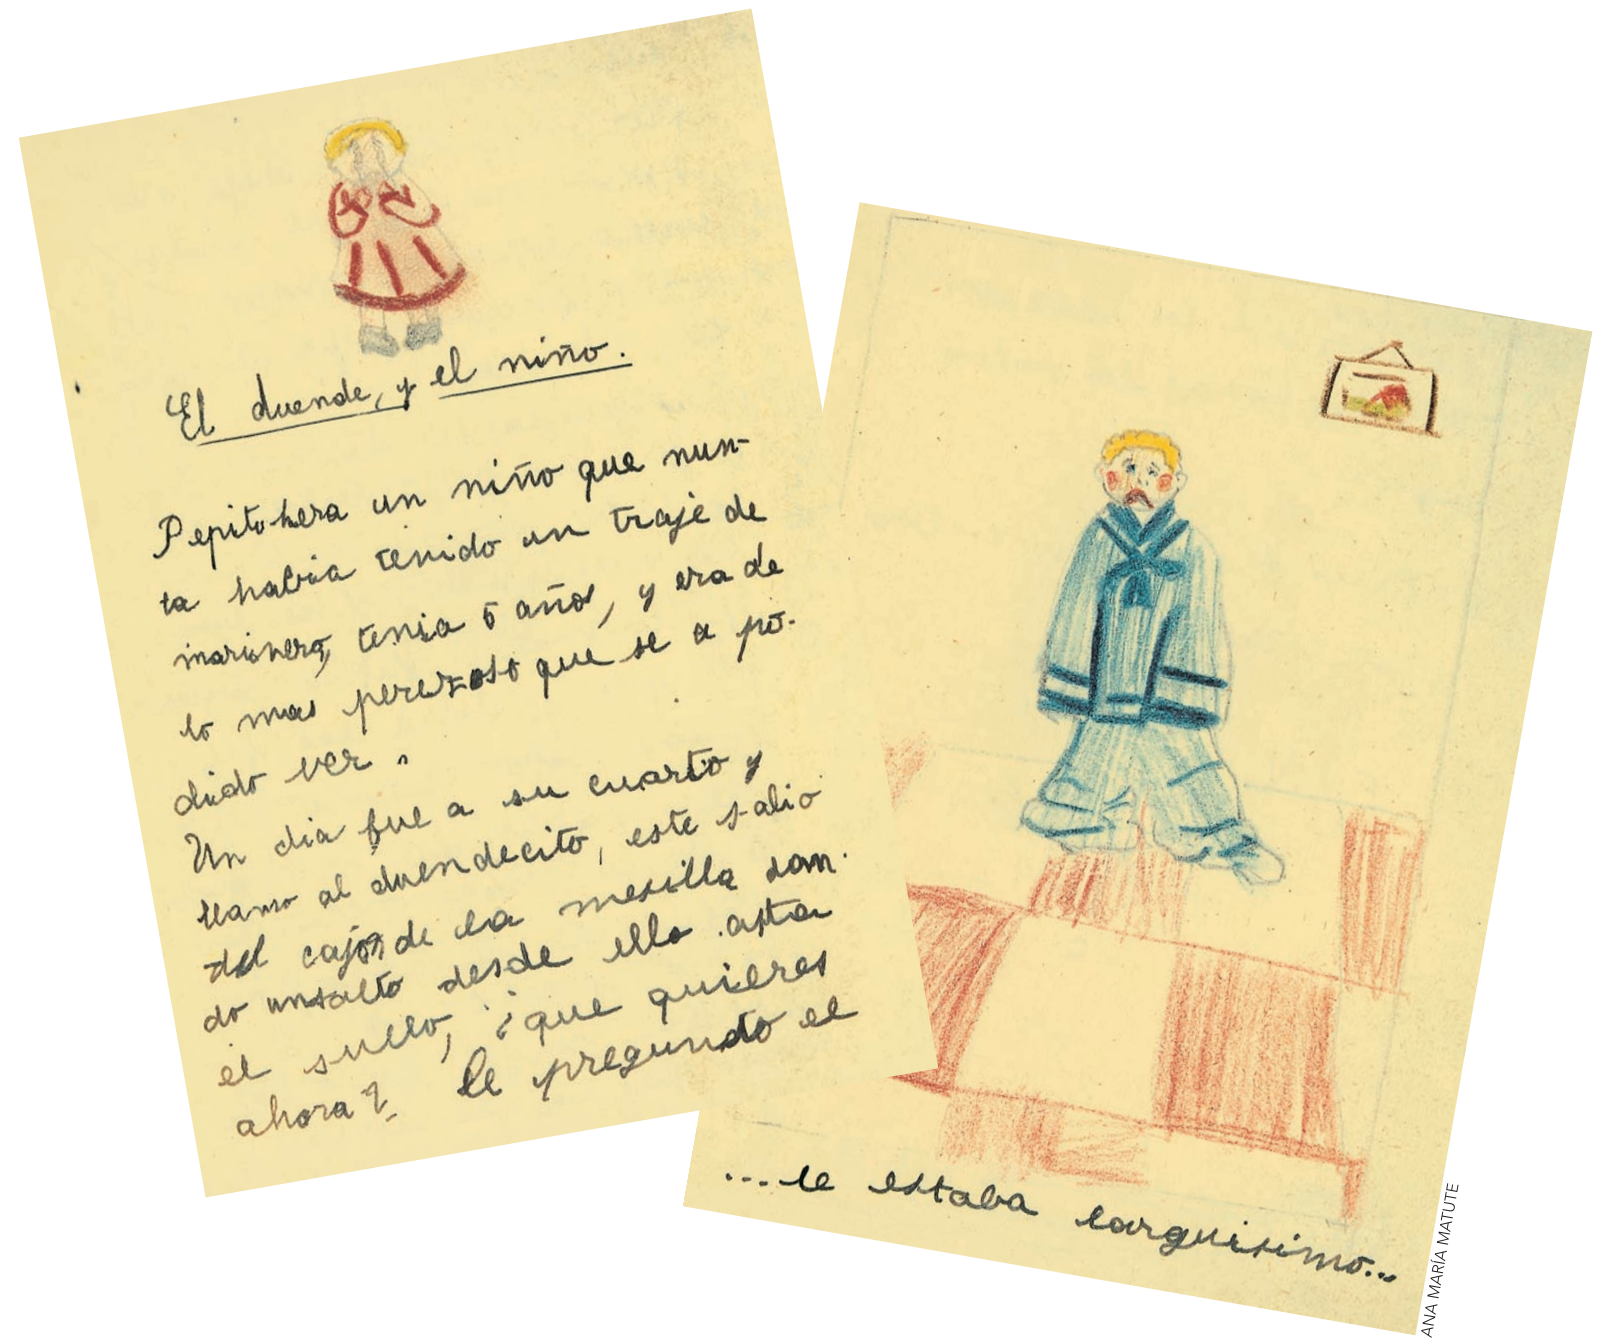 El duende, y el niño.
Pepito hera un niño que nun-
ta habia tenido un traje de
marinero, tenia 5 años, y era de
lo mas perezoso que se a po-
dido ver.
Un dia fue a su cuarto y
llamo al duendecito, este salio
del cajon de la mesilla dan-
do un salto desde ella asta
el suelo, ¿que quieres
ahora? le pregundto el
...le estaba larguisimo...
ANA MARÍA MATUTE